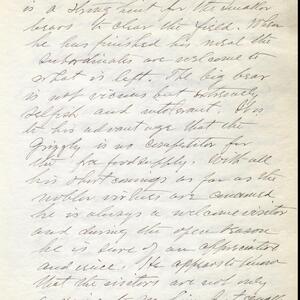 is a strong hint for the smaller
bears to clear the field. When
he has finished his meal the
subordinates are welcome to
what is left. The big bear
is not vicious but extremely
selfish and intolerant. It is
to his advantage that the
Grizzly is no competitor for
the food supply. With all
his short comings as far as the
nobler virtues are concerned
he is always a welcome visitor
and during the open season
he is sure of an appreciative
audience. He appears to know
that the visitors are not only